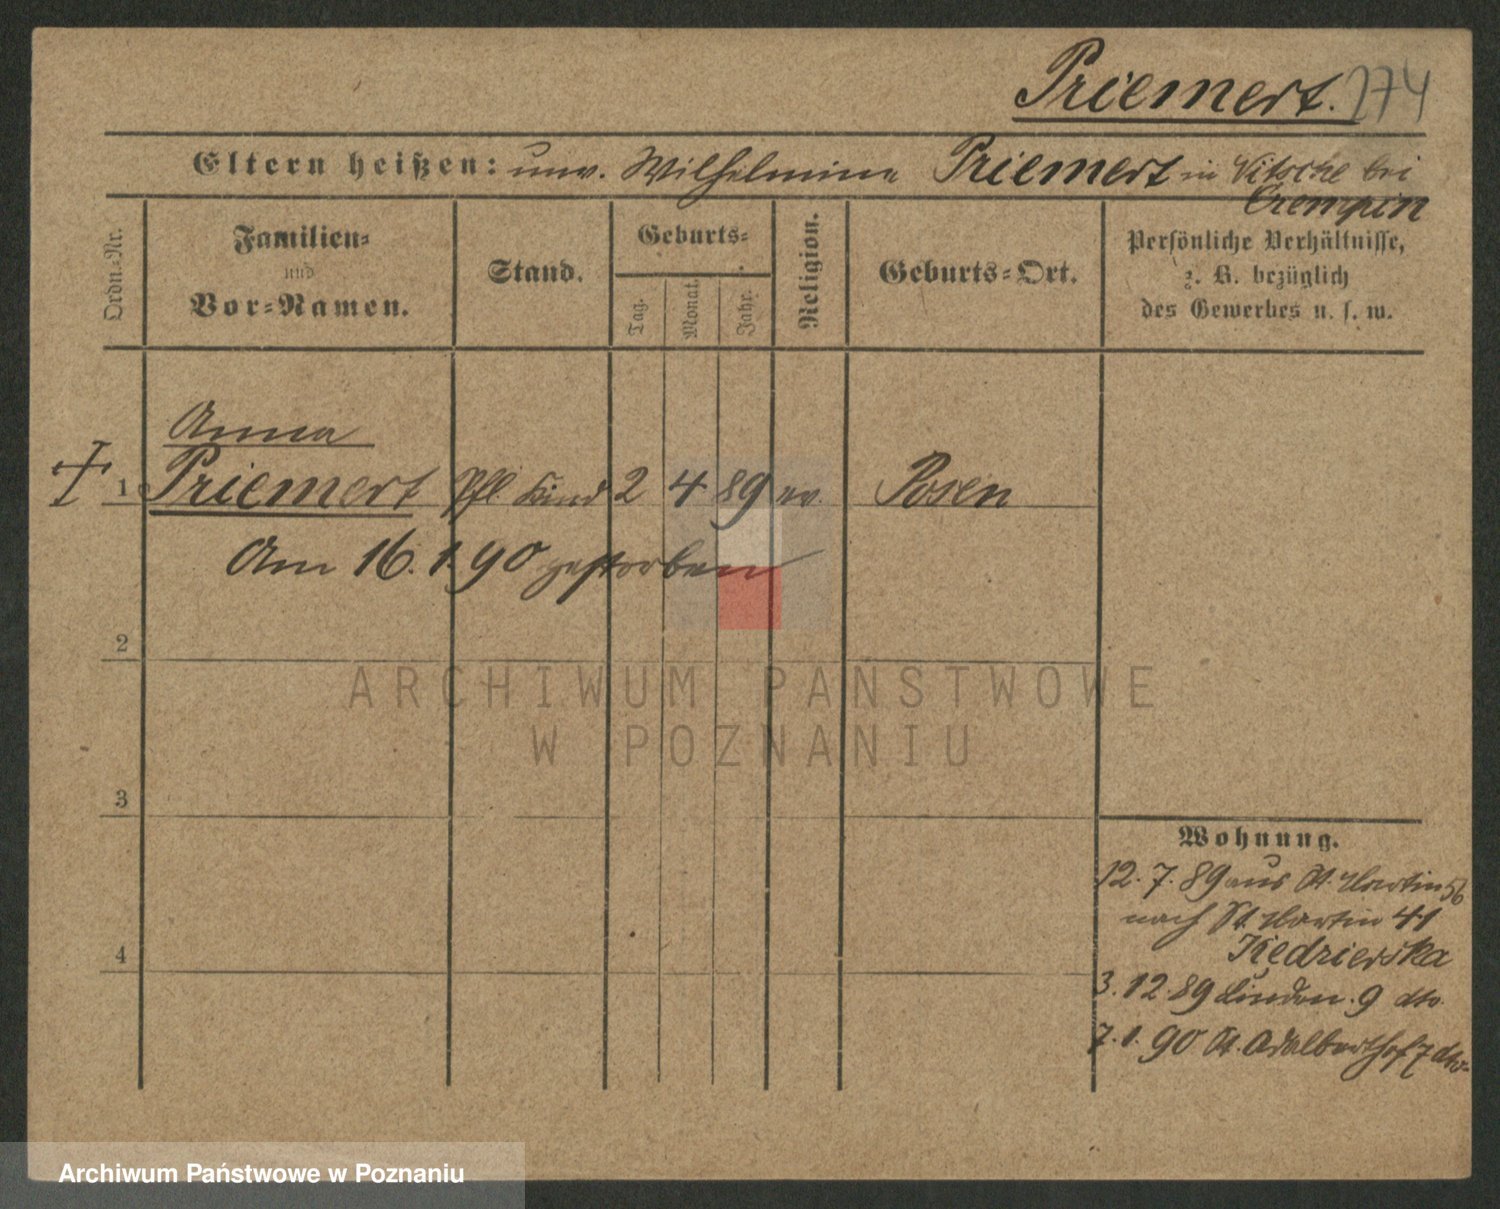 Priemert. 274
Eltern heißen: unv. Wilhelmine Priemert in Nitsche bei
Czempin
Ordn.-Nr.
Familien-
und
Vor-Namen.
Stand.
Geburts-
Tag.
Monat.
Jahr.
Religion.
Geburts-Ort.
Persönliche Verhältnisse,
z. B. bezüglich
des Gewerbes u. s. w.
Anna
1 Priemert Pfl. Kind 2 4 89 ev. Posen
Am 16.1.90 gestorben
2
3
4
ARCHIWUM PAŃSTWOWE
W POZNANIU
Wohnung.
12. 7. 89 aus St. Martin 56
nach St. Martin 41
Kędzierska
3. 12. 89 Linden. 9 dto.
7. 1. 90 St. Adalberthof 7 dto.
Archiwum Państwowe w Poznaniu